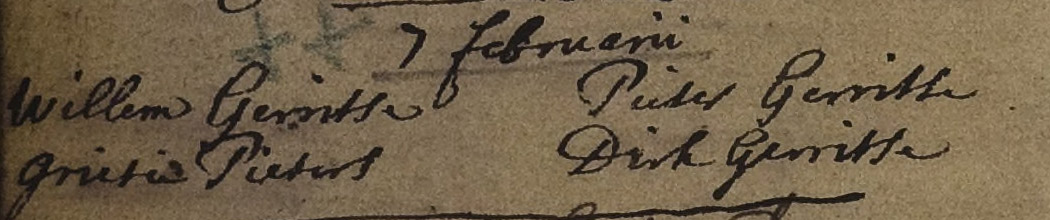 7 februarii
Willem Gerritse Pieter Gerritse
Grietie Pieters Dirk Gerritse